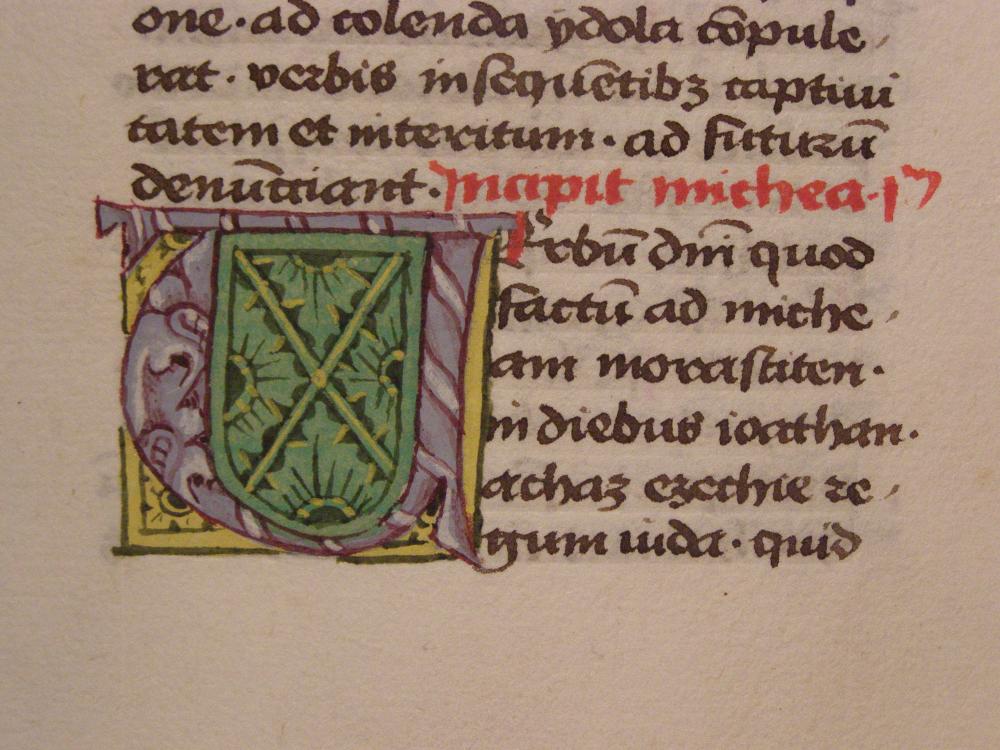 one · ad colenda ydola cōpule
rat · verbis insequētibꝫ captiui
tatem et interitum · ad futurū
denūctiant · Incipit michea · pͫ
Erbū dnī quod
factū ad miche
am morastiten ·
in diebus ioathan ·
achaz ezechie re
gum iuda · quid